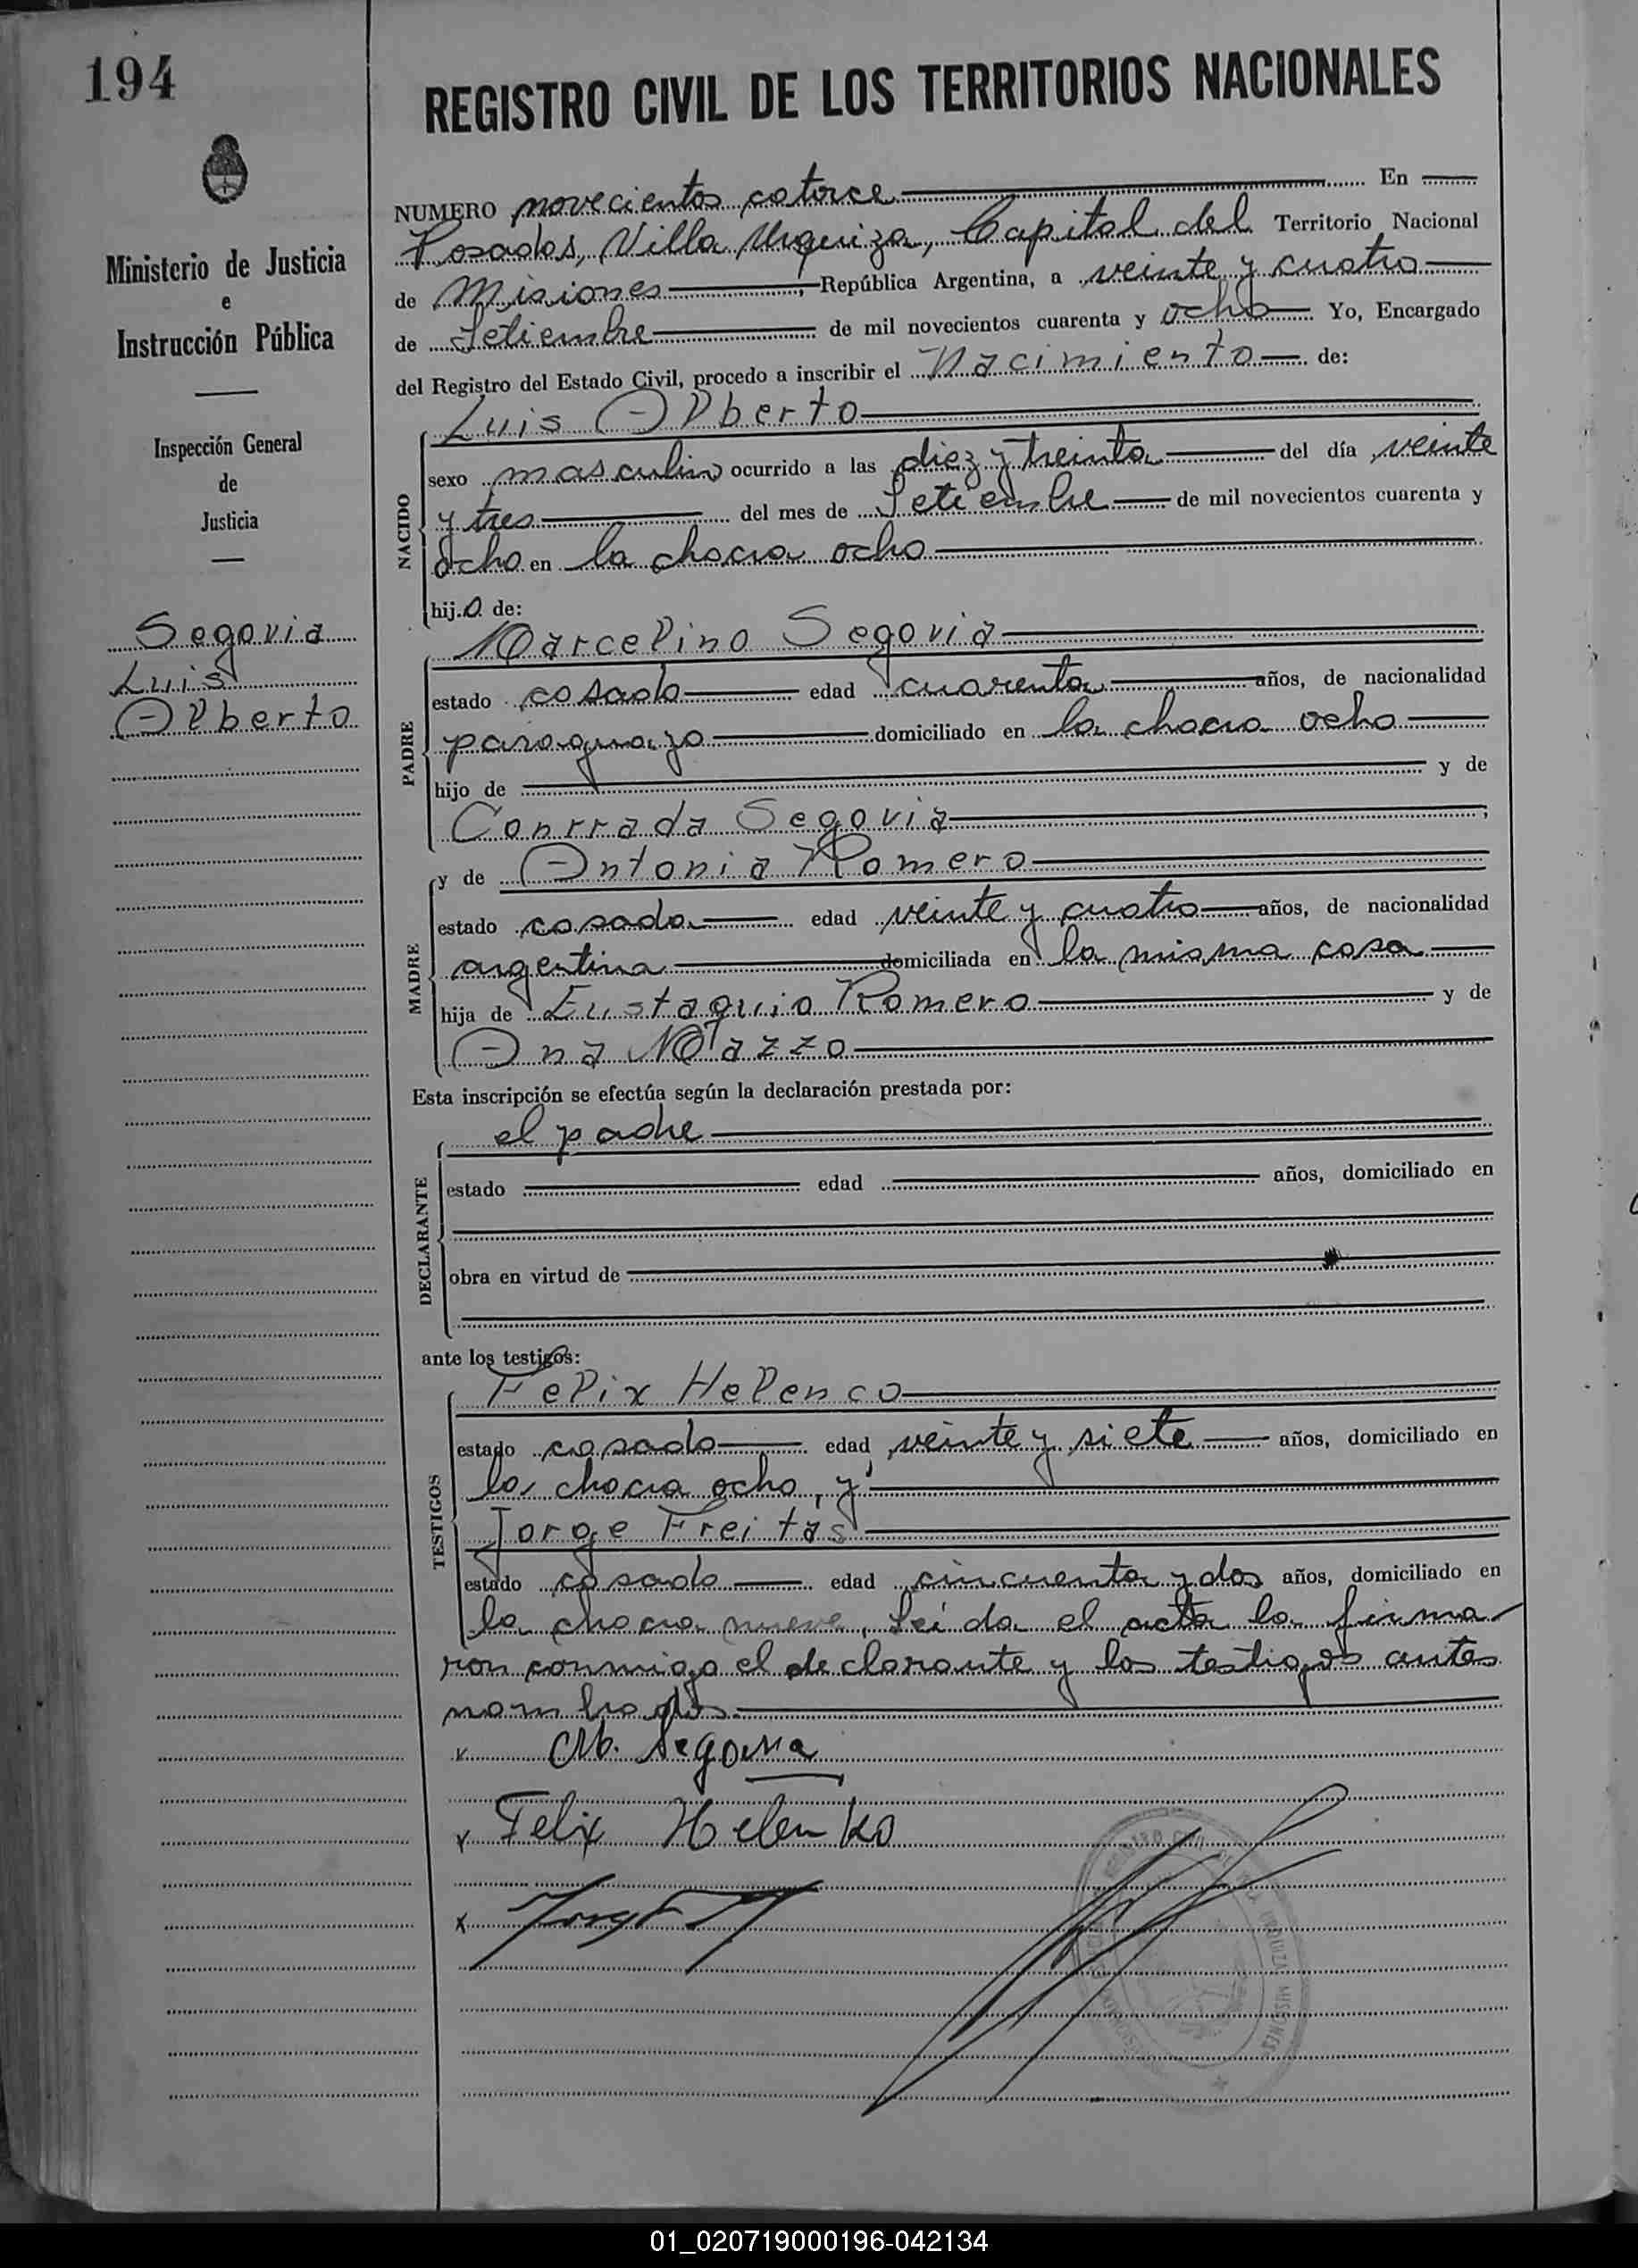 194
REGISTRO CIVIL DE LOS TERRITORIOS NACIONALES
Ministerio de Justicia
e
Instrucción Pública
Inspección General
de
Justicia
Segovia
Luis
Alberto
NUMERO novecientos catorce En
Posadas, Villa Urquiza, Capital del Territorio Nacional
de Misiones, República Argentina, a veinte y cuatro
de Setiembre de mil novecientos cuarenta y ocho Yo, Encargado
del Registro del Estado Civil, procedo a inscribir el Nacimiento de:
NACIDO
Luis Alberto
sexo masculino ocurrido a las diez y treinta del día veinte
y tres del mes de Setiembre de mil novecientos cuarenta y
ocho en la chacra ocho
hijo de:
PADRE
Marcelino Segovia
estado casado edad cuarenta años, de nacionalidad
paraguayo domiciliado en la chacra ocho
hijo de y de
Conrrada Segovia;
MADRE
y de Antonia Romero
estado casada edad veinte y cuatro años, de nacionalidad
argentina domiciliada en la misma casa
hija de Eustaquio Romero y de
Ana
Esta inscripción se efectúa según la declaración prestada por:
DECLARANTE
el padre
estado edad años, domiciliado en
obra en virtud de
ante los testigos:
TESTIGOS
Felix Helenco
estado casado edad veinte y siete años, domiciliado en
la chacra ocho, y
Jorge Freitas
estado casado edad cincuenta y dos años, domiciliado en
la chacra nueve, Leída el acta la firma
ron conmigo el declarante y los testigos antes
nombrados.
M. Segovia
x Felix Helenko
x
01_020719000196-042134